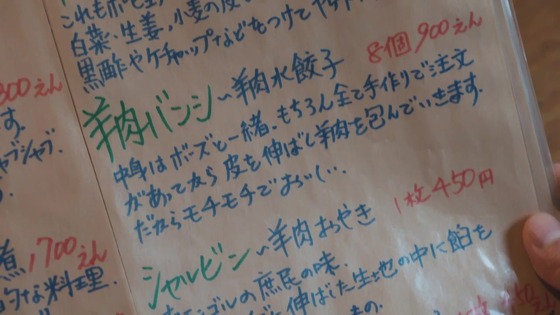 これもボーズと
白菜、生姜、小麦の皮
黒酢やケチャップなどをつけて
羊肉バンシ〜羊肉水餃子 8個900えん
中身はボーズと一緒。もちろん全て手作りで注文
があってから皮を伸ばし羊肉を包んでいきます。
だからモチモチでおいしい…
シャルビン〜羊肉おやき 1枚450円
モンゴルの庶民の味。
伸ばした生地の中に餡を
300えん
す。
ャブシャブ
煮 1,700えん
的な料理。